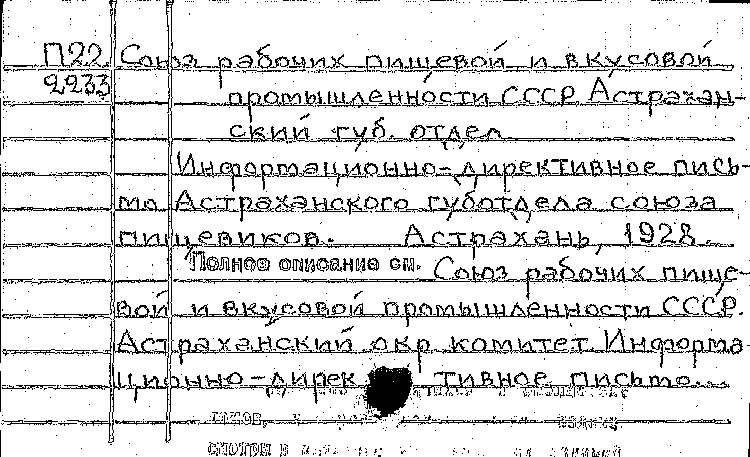 П22 Союз рабочих пищевой и вкусовой
2233 промышленности СССР. Астрахан-
ский губ. отдел
Информационно-директивное пись-
мо Астраханского губотдела союза
пищевиков. Астрахань, 1928.
Полное описание см. Союз рабочих пище-
вой и вкусовой промышленности СССР.
Астраханский окр. комитет. Информа-
ционно-дирек тивное письмо...
смотри в